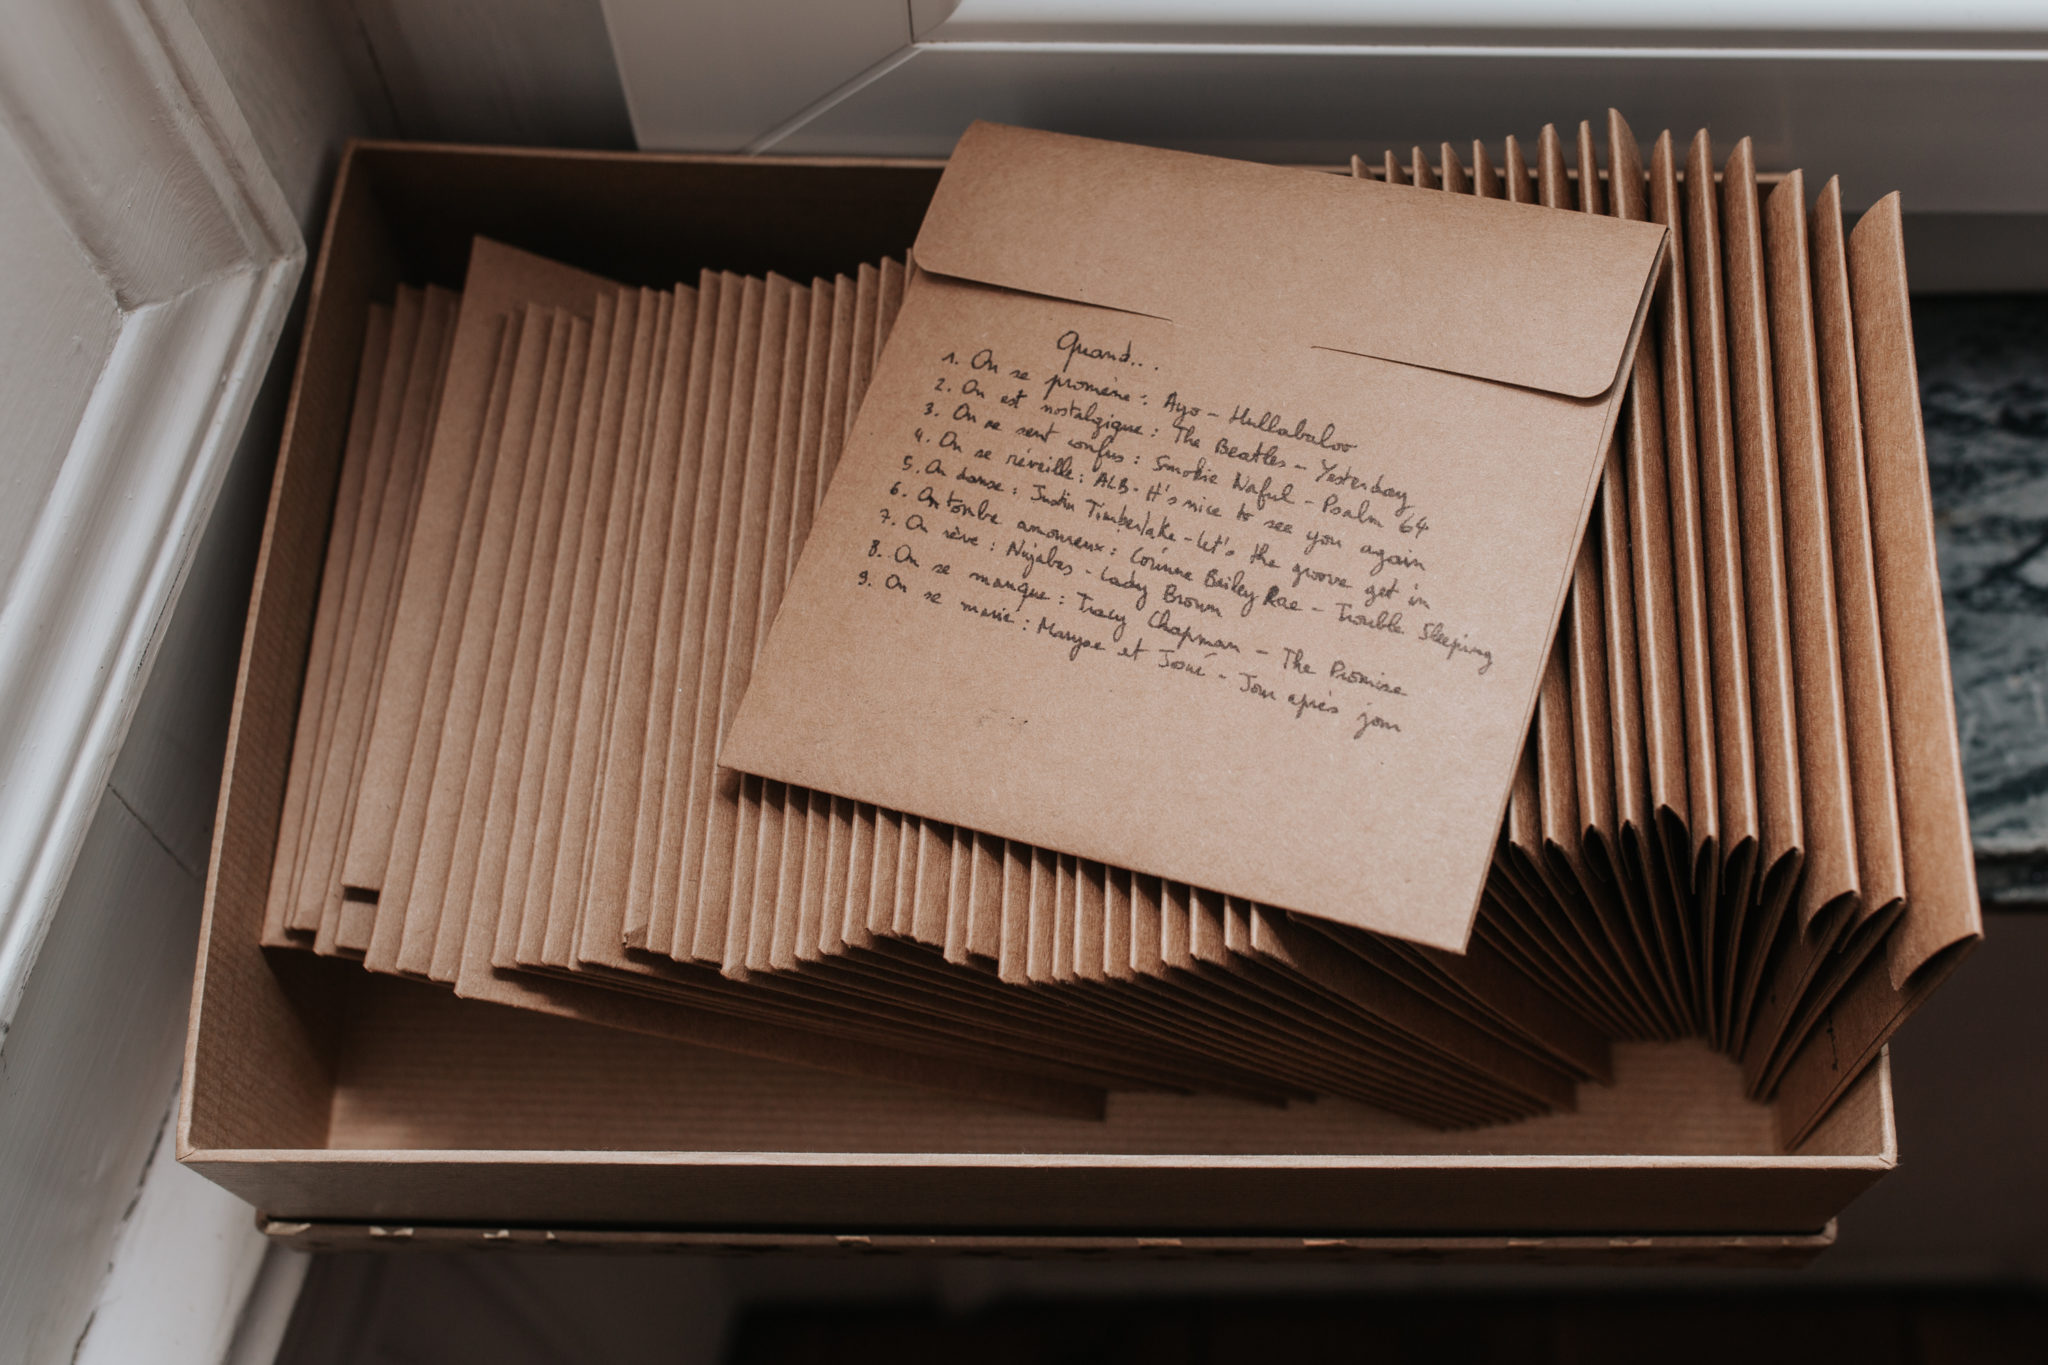 Quand...
1. On se promène : Ayo - Hullabaloo
2. On est nostalgique : The Beatles - Yesterday
3. On se sent confus : Smokie Noful - Psalm 64
4. On se réveille : ALB - It's nice to see you again
5. On danse : Justin Timberlake - Let's the groove get in
6. On tombe amoureux : Corinne Bailey Rae - Trouble Sleeping
7. On rêve : Nujabes - Lady Brown
8. On se manque : Tracy Chapman - The Promise
9. On se marie : Maryse et Josué - Jour après jour